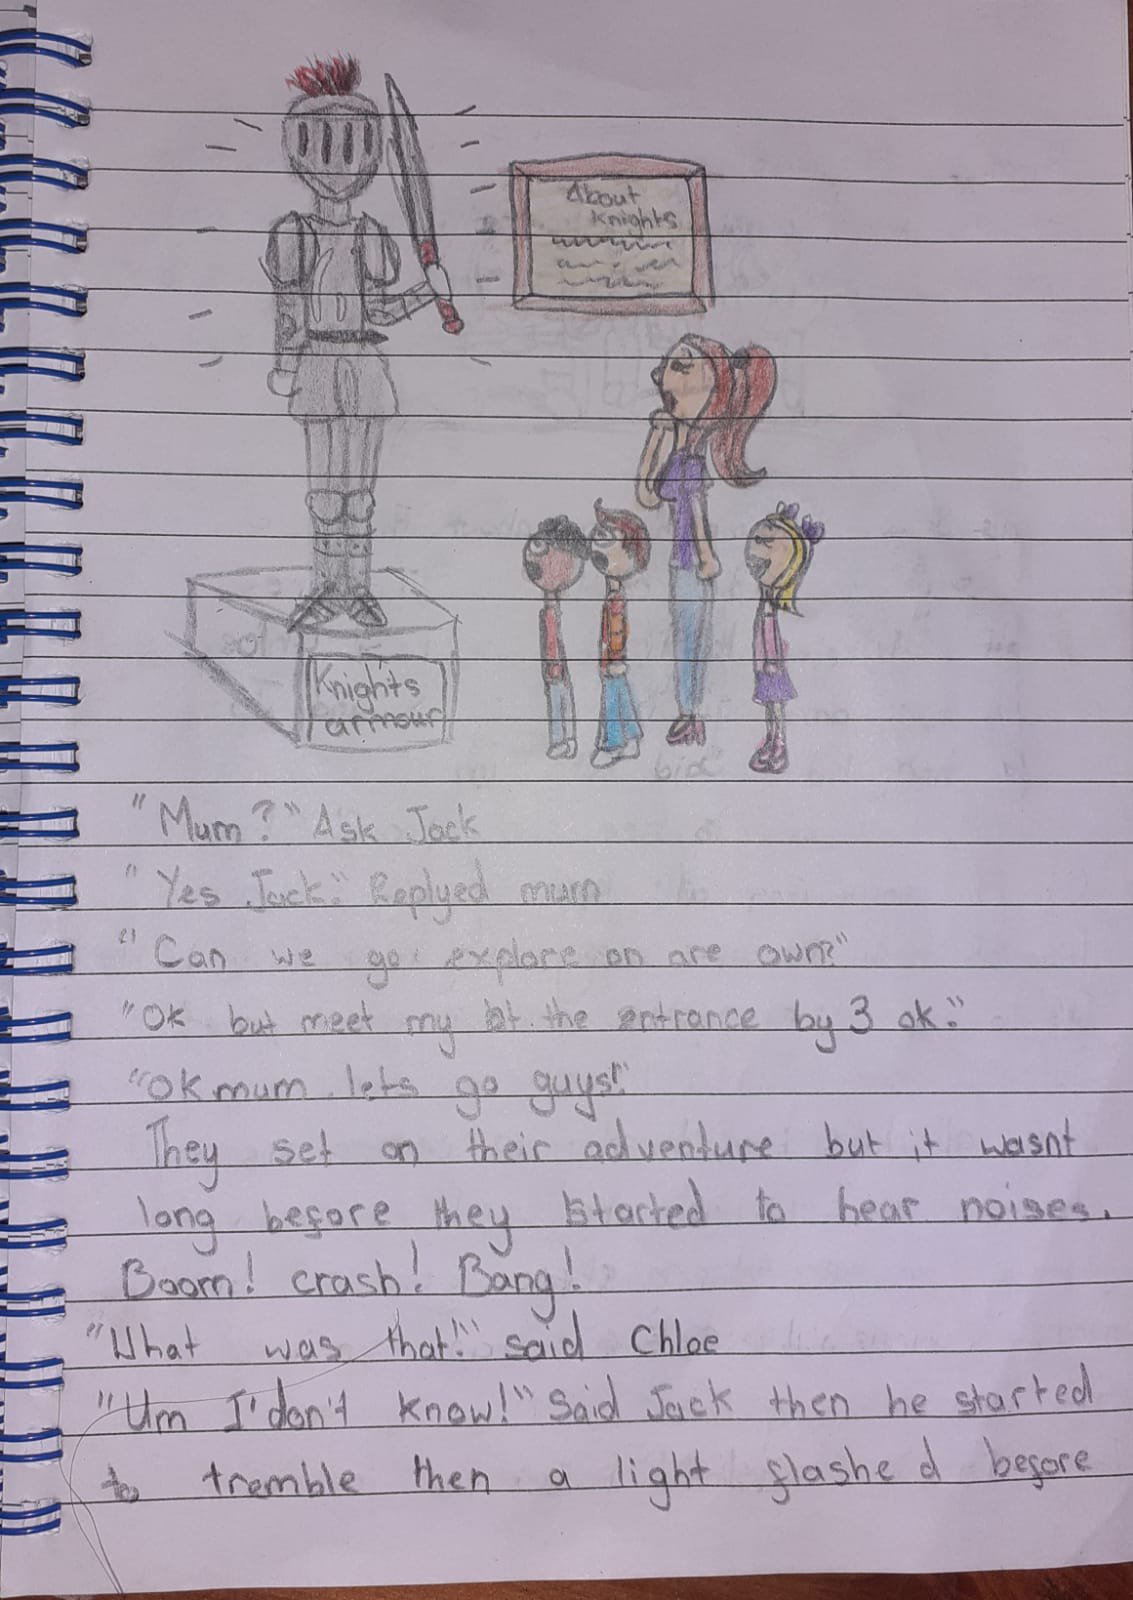 About
Knights
Knights
armour
"Mum?" Ask Jack
"Yes Jack." Replyed mum
"Can we go explore on are own?"
"Ok but meet my at the entrance by 3 ok."
"Ok mum lets go guys!"
They set on their adventure but it wasnt
long before they started to hear noises.
Boom! crash! Bang!
"What was that!" said Chloe
"Um I'don't know!" Said Jack then he started
to tremble then a light flashed before